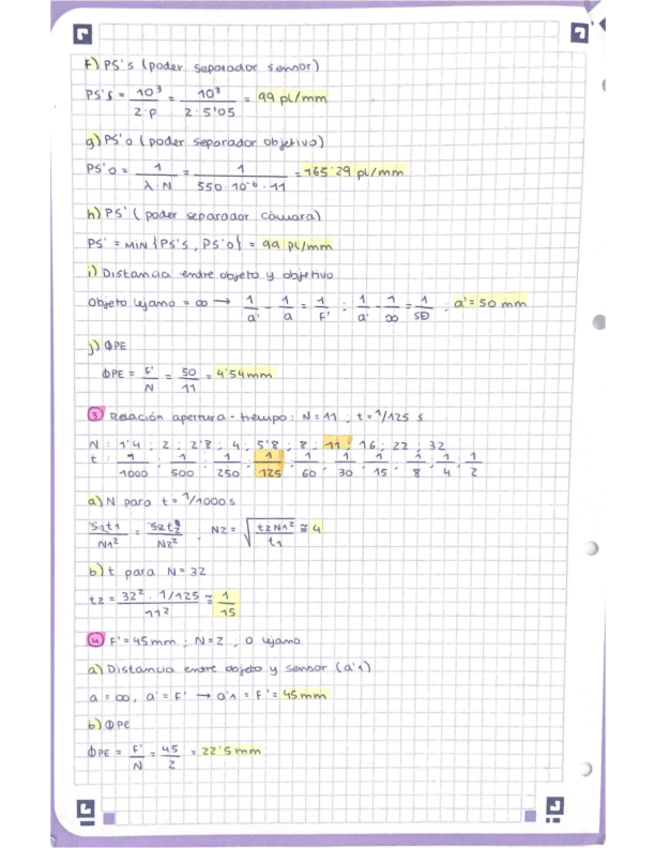 f) PS's (poder separador sensor)
PS's = 10³/2·p = 10³/2·5'05 = 99 pl/mm
g) PS'o (poder separador objetivo)
PS'o = 1/λ·N = 1/550·10⁻⁶·11 = 165'29 pl/mm
h) PS' (poder separador cámara)
PS' = MIN {PS's, PS'o} = 99 pl/mm
i) Distancia entre objeto y objetivo
Objeto lejano = ∞ → 1/a' - 1/a = 1/F' ; 1/a' - 1/∞ = 1/50 ; a' = 50 mm
j) ΦPE
ΦPE = F'/N = 50/11 = 4'54mm
3 Relación apertura - tiempo: N=11 ; t=1/125 s
N : 1'4 ; 2 ; 2'8 ; 4 ; 5'8 ; 8 ; 11 ; 16 ; 22 ; 32
t : 1/1000 ; 1/500 ; 1/250 ; 1/125 ; 1/60 ; 1/30 ; 1/15 ; 1/8 ; 1/4 ; 1/2
a) N para t = 1/1000 s
S1t1/N1² = S2t2/N2² ; N2 = √t2N1²/t1 ≅ 4
b) t para N=32
t2 = 32² · 1/125/11² ≅ 1/15
4 F'=45mm ; N=2 , O lejano
a) Distancia entre objeto y sensor (a'1)
a = ∞, a' = F' → a'1 = F' = 45mm
b) ΦPE
ΦPE = F'/N = 45/2 = 22'5mm